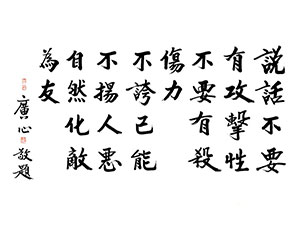 說話不要
有攻擊性
不要有殺
傷力
不誇己能
不揚人惡
自然化敵
為友
廣心敬題